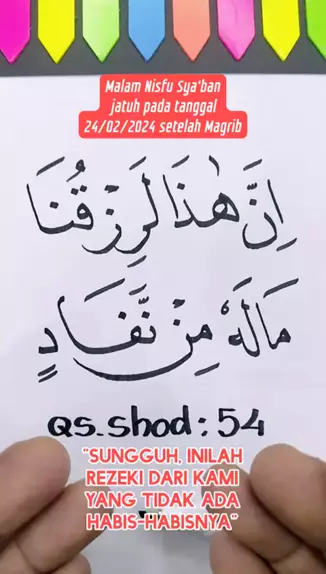 Malam Nisfu Sya'ban
jatuh pada tanggal
24/02/2024 setelah Magrib
اِنَّ هٰذَا لَرِزْقُنَا
مَالَهٗ مِنْ نَّفَادٍ
QS. Shod : 54
"SUNGGUH, INILAH
REZEKI DARI KAMI
YANG TIDAK ADA
HABIS-HABISNYA"